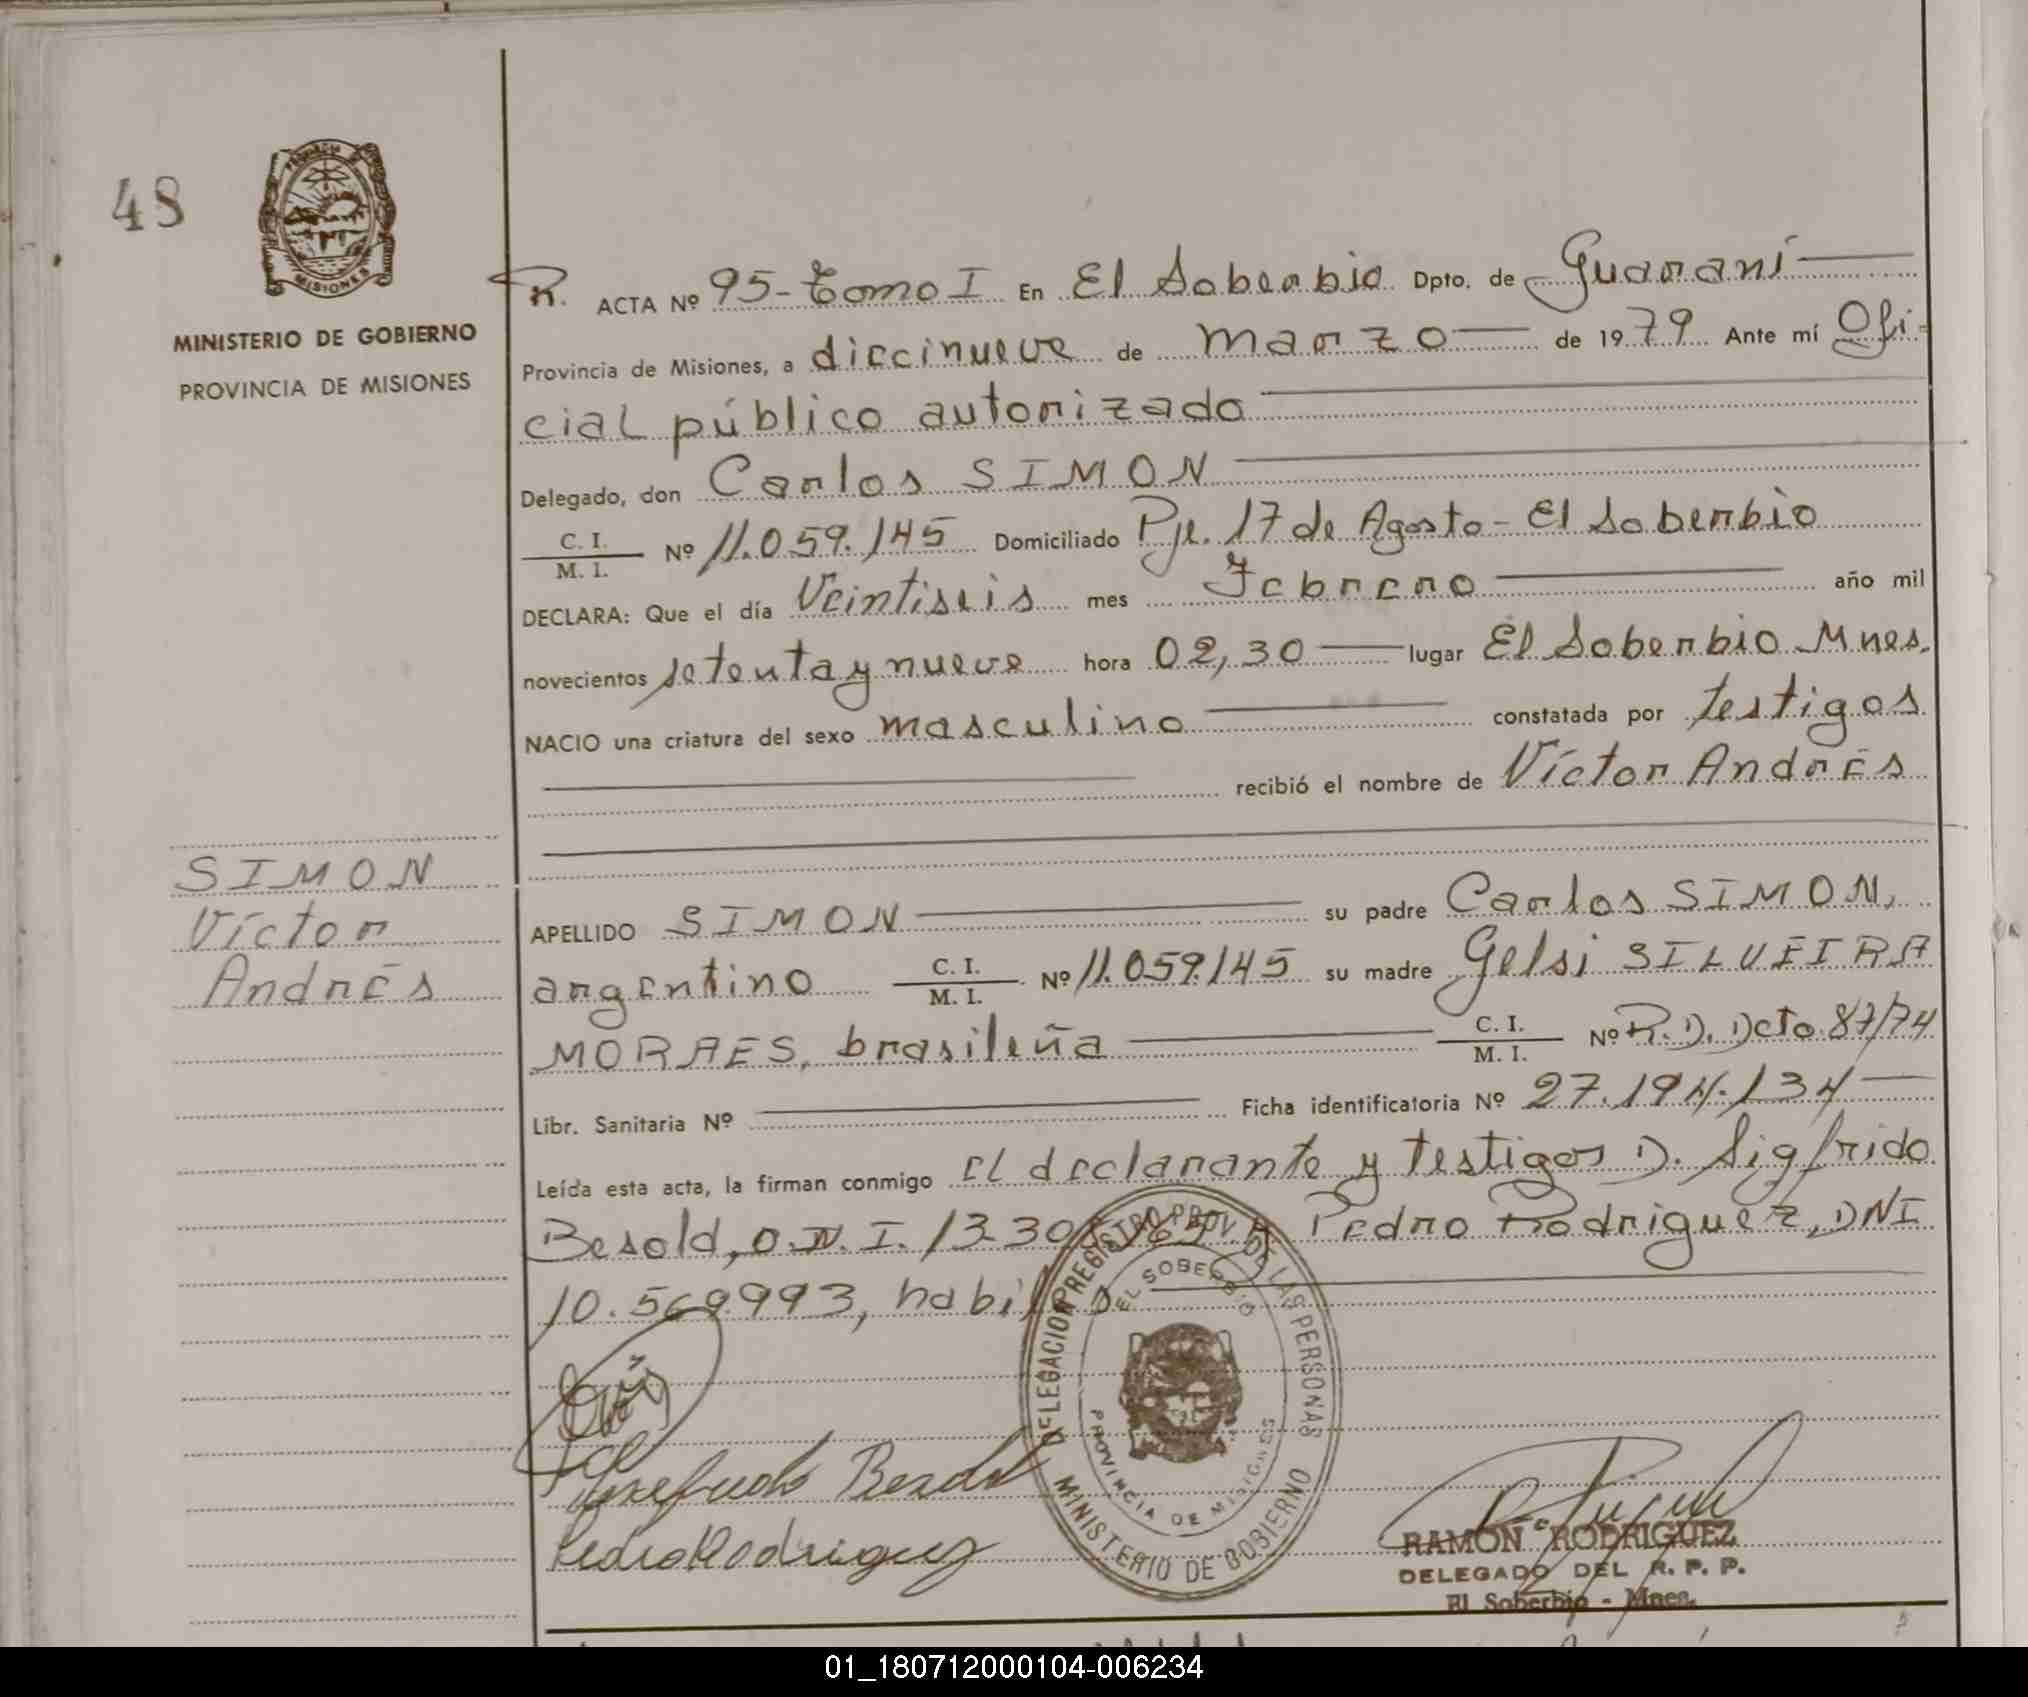 48
PROVINCIA DE
MISIONES
MINISTERIO DE GOBIERNO
PROVINCIA DE MISIONES
R. ACTA Nº 95-Tomo I En El Soberbio Dpto. de Guaraní
Provincia de Misiones, a diecinueve de marzo de 1979 Ante mí Ofi-
cial público autorizado
Delegado, don Carlos SIMON
C. I. / M. I. Nº 11.059.145 Domiciliado Pje. 17 de Agosto - El Soberbio
DECLARA: Que el día Veintiseis mes Febrero año mil
novecientos setenta y nueve hora 02,30 lugar El Soberbio Mnes.
NACIO una criatura del sexo masculino constatada por testigos
recibió el nombre de Víctor Andrés
SIMON
Víctor
Andrés
APELLIDO SIMON su padre Carlos SIMON,
argentino C. I. / M. I. Nº 11.059.145 su madre Gelsi SILVEIRA
MORAES, brasileña C. I. / M. I. Nº R.D. Dcto. 87/74
Libr. Sanitaria Nº Ficha identificatoria Nº 27.194.134
Leída esta acta, la firman conmigo el declarante y testigos D. Sigfrido
Besold, D.N.I. 13.30 Pedro Rodriguez, DNI
10.569.993, habiles
DELEGACION REGISTRO PROV. DE LAS PERSONAS
EL SOBERBIO
PROVINCIA DE MISIONES
MINISTERIO DE GOBIERNO
Besold
Pedro Rodriguez
RAMON RODRIGUEZ
DELEGADO DEL R. P. P.
El Soberbio - Mnes.
01_180712000104-006234